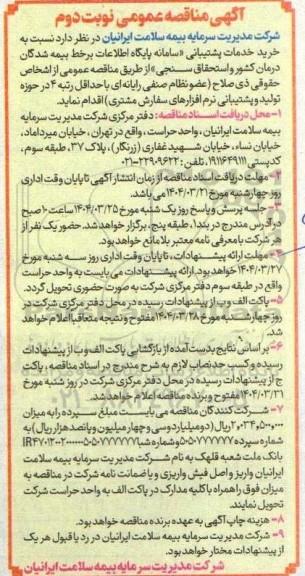 آگهی مناقصه عمومی نوبت دوم
شرکت مدیریت سرمایه بیمه سلامت ایرانیان در نظر دارد نسبت به
خرید خدمات پشتیبانی «سامانه پایگاه اطلاعات برخط بیمه شدگان
درمان کشور و استحقاق سنجی» از طریق مناقصه عمومی از اشخاص
حقوقی ذی صلاح (عضو نظام صنفی رایانه ای با حداقل رتبه ۴ در حوزه
تولید و پشتیبانی نرم افزارهای سفارش مشتری) اقدام نماید.
۱- محل دریافت اسناد مناقصه: دفتر مرکزی شرکت مدیریت سرمایه
بیمه سلامت ایرانیان، واحد حراست، واقع در تهران، خیابان میرداماد،
خیابان نساء، خیابان شهید غفاری (زرنگار)، پلاک ۳۷، طبقه سوم،
کدپستی ۱۹۱۱۶۴۹۱۱۱، تلفن: ۲۲۹۰۹۶۲۲-۰۲۱
۲- مهلت دریافت اسناد مناقصه از زمان انتشار آگهی تا پایان وقت اداری
روز چهارشنبه مورخ ۱۴۰۴/۰۳/۲۱ می باشد.
۳- جلسه پرسش و پاسخ روز یک شنبه مورخ ۱۴۰۴/۰۳/۲۵ ساعت ۱۰ صبح
در آدرس مندرج در بند ۱، طبقه پنج، برگزار خواهد شد. حضور یک نفر از
هر شرکت با معرفی نامه معتبر بلامانع خواهد بود.
۴- مهلت ارائه پیشنهادات، تا پایان وقت اداری روز سه شنبه مورخ
۱۴۰۴/۰۳/۲۷ خواهد بود. ارائه پیشنهادات می بایست به واحد حراست
واقع در طبقه سوم دفتر مرکزی شرکت به صورت حضوری تحویل گردد.
۵- پاکت الف و ب از پیشنهادات رسیده در محل دفتر مرکزی شرکت در
روز چهارشنبه مورخ ۱۴۰۴/۰۳/۲۸ مفتوح و نتیجه متعاقبا اعلام خواهد
شد.
۶- بر اساس نتایج بدست آمده از بازگشایی پاکت الف و ب از پیشنهادات
رسیده و کسب حد نصاب لازم به شرح مندرج در اسناد مناقصه، پاکت
ج از پیشنهادات رسیده در محل دفتر مرکزی شرکت در روز شنبه مورخ
۱۴۰۴/۰۳/۳۱ مفتوح و برنده مناقصه اعلام خواهد شد.
۷- شرکت کنندگان مناقصه می بایست مبلغ سپرده را به میزان
ریال (دو میلیارد و سی و چهار میلیون و پانصد هزار ریال) به
شماره سپرده و شماره شبا
بانک ملت شعبه قلهک به نام شرکت مدیریت سرمایه بیمه سلامت
ایرانیان واریز و اصل فیش واریزی و یا ضمانت نامه شرکت در مناقصه به
میزان فوق را همراه با کلیه مدارک در پاکت الف به واحد حراست شرکت
تحویل نمایند.
۸- هزینه چاپ آگهی به عهده برنده مناقصه خواهد بود.
۹- شرکت مدیریت سرمایه بیمه سلامت ایرانیان در رد یا قبول هر یک
از پیشنهادات مختار خواهد بود.
شرکت مدیریت سرمایه بیمه سلامت ایرانیان